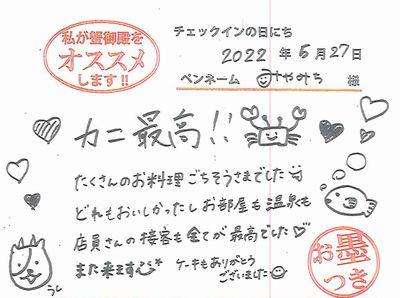 私が蟹御殿を
オススメ
します!!
チェックインの日にち
2022 年 5月27日
ペンネーム みやみち 様
カニ最高!!
たくさんのお料理ごちそうさまでした
どれもおいしかったしお部屋も温泉も
店員さんの接客も全てが最高でした♡
また来ます
ケーキもありがとう
ございました
うし
お墨
つき